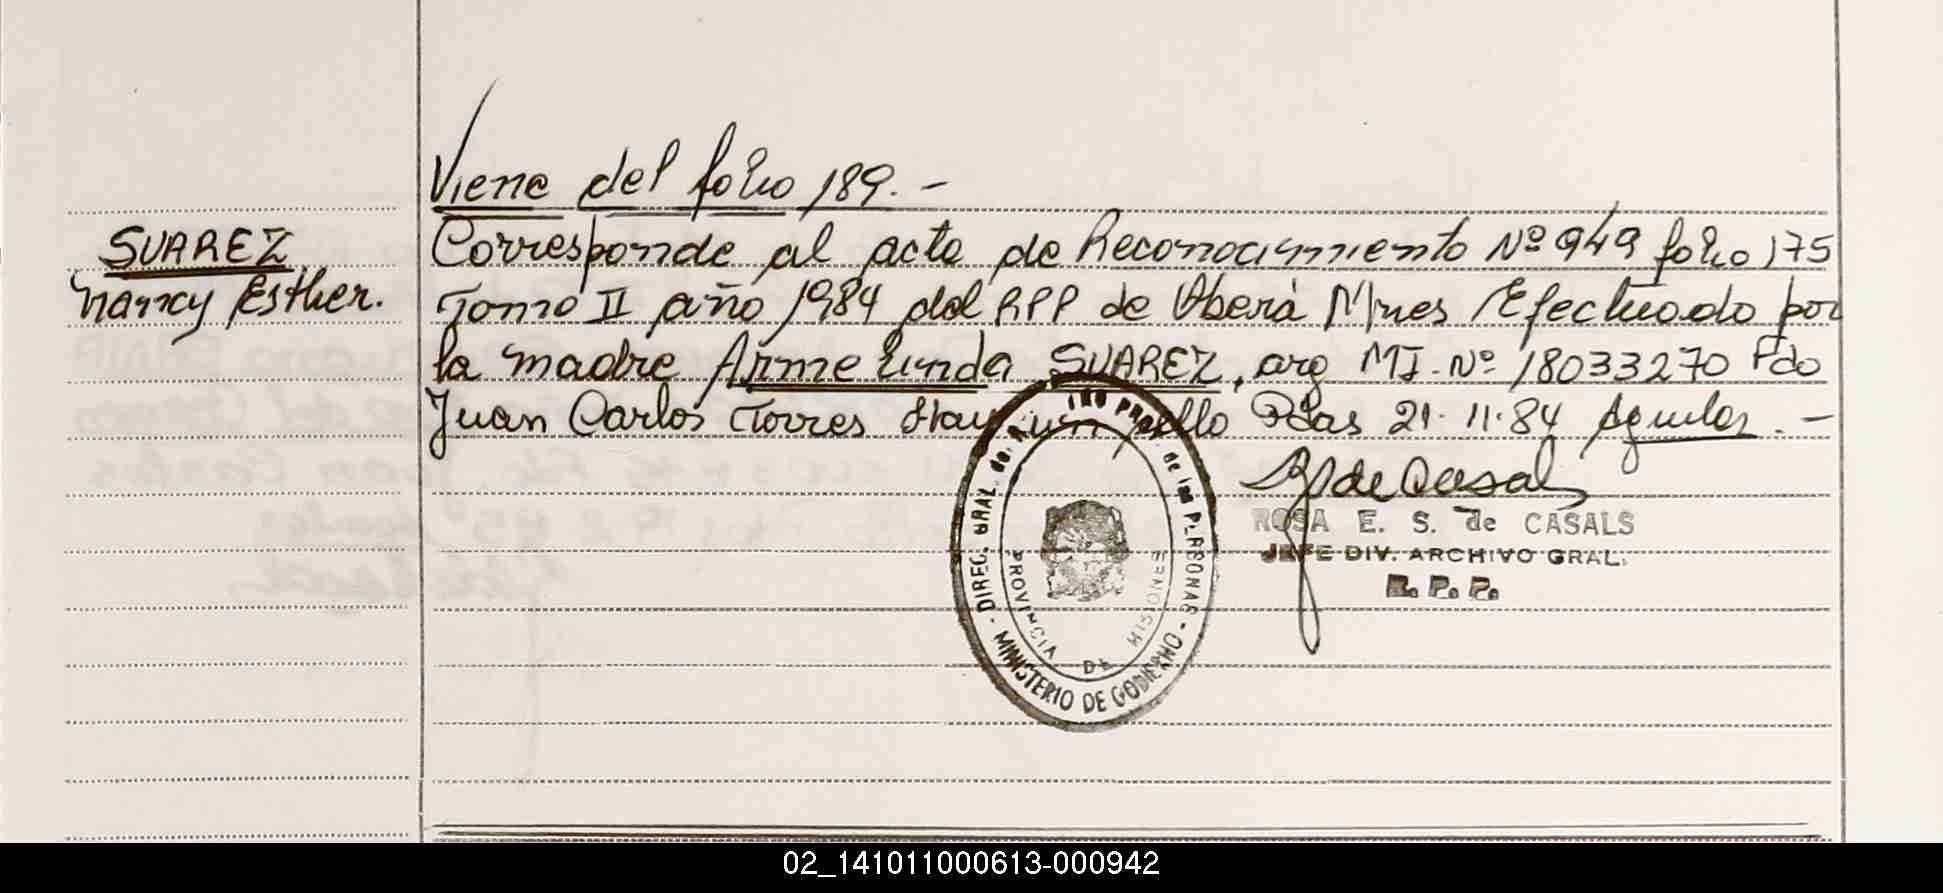 Viene del folio 189. -
SUAREZ
Nancy Esther.
Corresponde al acta de Reconocimiento Nº 949 folio 175
Tomo II año 1984 del RPP de Oberá Mnes Efectuado por
la madre Armelinda SUAREZ, arg MI. Nº 18033270 Fdo
Juan Carlos Torres Hay un sello Pdas 21.11.84 Aguilar. -
ROSA E. S. de CASALS
JEFE DIV. ARCHIVO GRAL.
R. P. P.
DIREC. GRAL. de las PERSONAS - MINISTERIO DE GOBIERNO -
PROVINCIA DE MISIONES
02_141011000613-000942